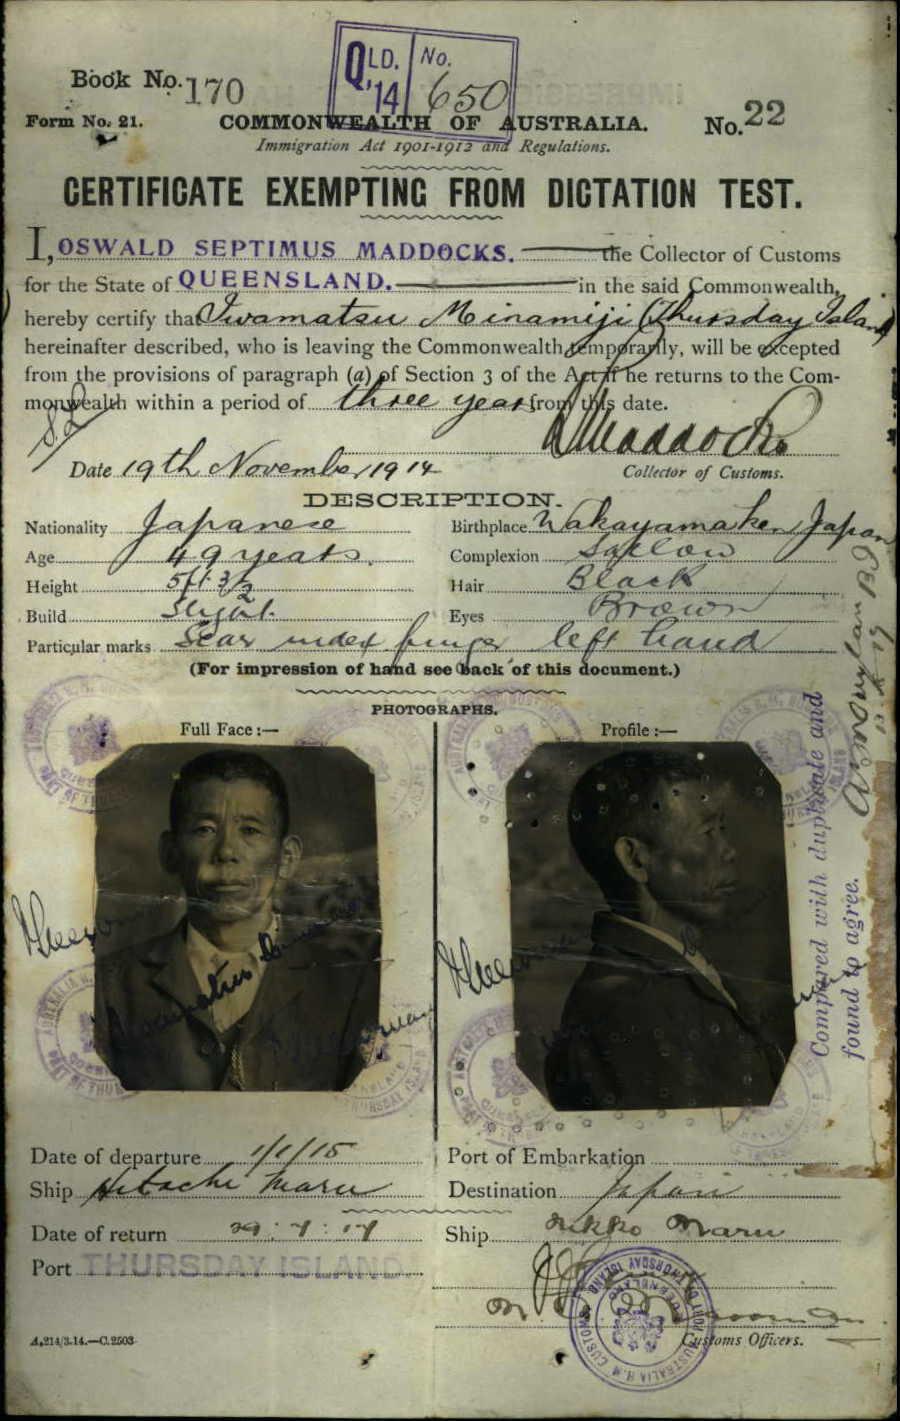 QLD. 14 No. 650
Book No. 170
Form No. 21. COMMONWEALTH OF AUSTRALIA. No. 22
Immigration Act 1901-1912 and Regulations.
CERTIFICATE EXEMPTING FROM DICTATION TEST.
I, OSWALD SEPTIMUS MADDOCKS. the Collector of Customs
for the State of QUEENSLAND. in the said Commonwealth,
hereby certify that Iwamatsu Minamiji (Thursday Island)
hereinafter described, who is leaving the Commonwealth temporarily, will be excepted
from the provisions of paragraph (a) of Section 3 of the Act if he returns to the Com-
monwealth within a period of three years from this date.
Maddocks
Date 19th November 1914 Collector of Customs.
DESCRIPTION.
Nationality Japanese Birthplace Wakayamaken Japan
Age 49 years. Complexion Sallow
Height 5ft 3½ Hair Black
Build Slight. Eyes Brown
Particular marks Scar index finger left hand
(For impression of hand see back of this document.)
PHOTOGRAPHS.
Full Face :— Profile :—
Iwamatsu
Compared with duplicate and
found to agree.
Date of departure 1/1/15 Port of Embarkation
Ship Hitachi Maru Destination Japan
Date of return 29:7:17 Ship Nikko Maru
Port THURSDAY ISLAND.
Customs Officers.
A.214/3.14.—C.2503